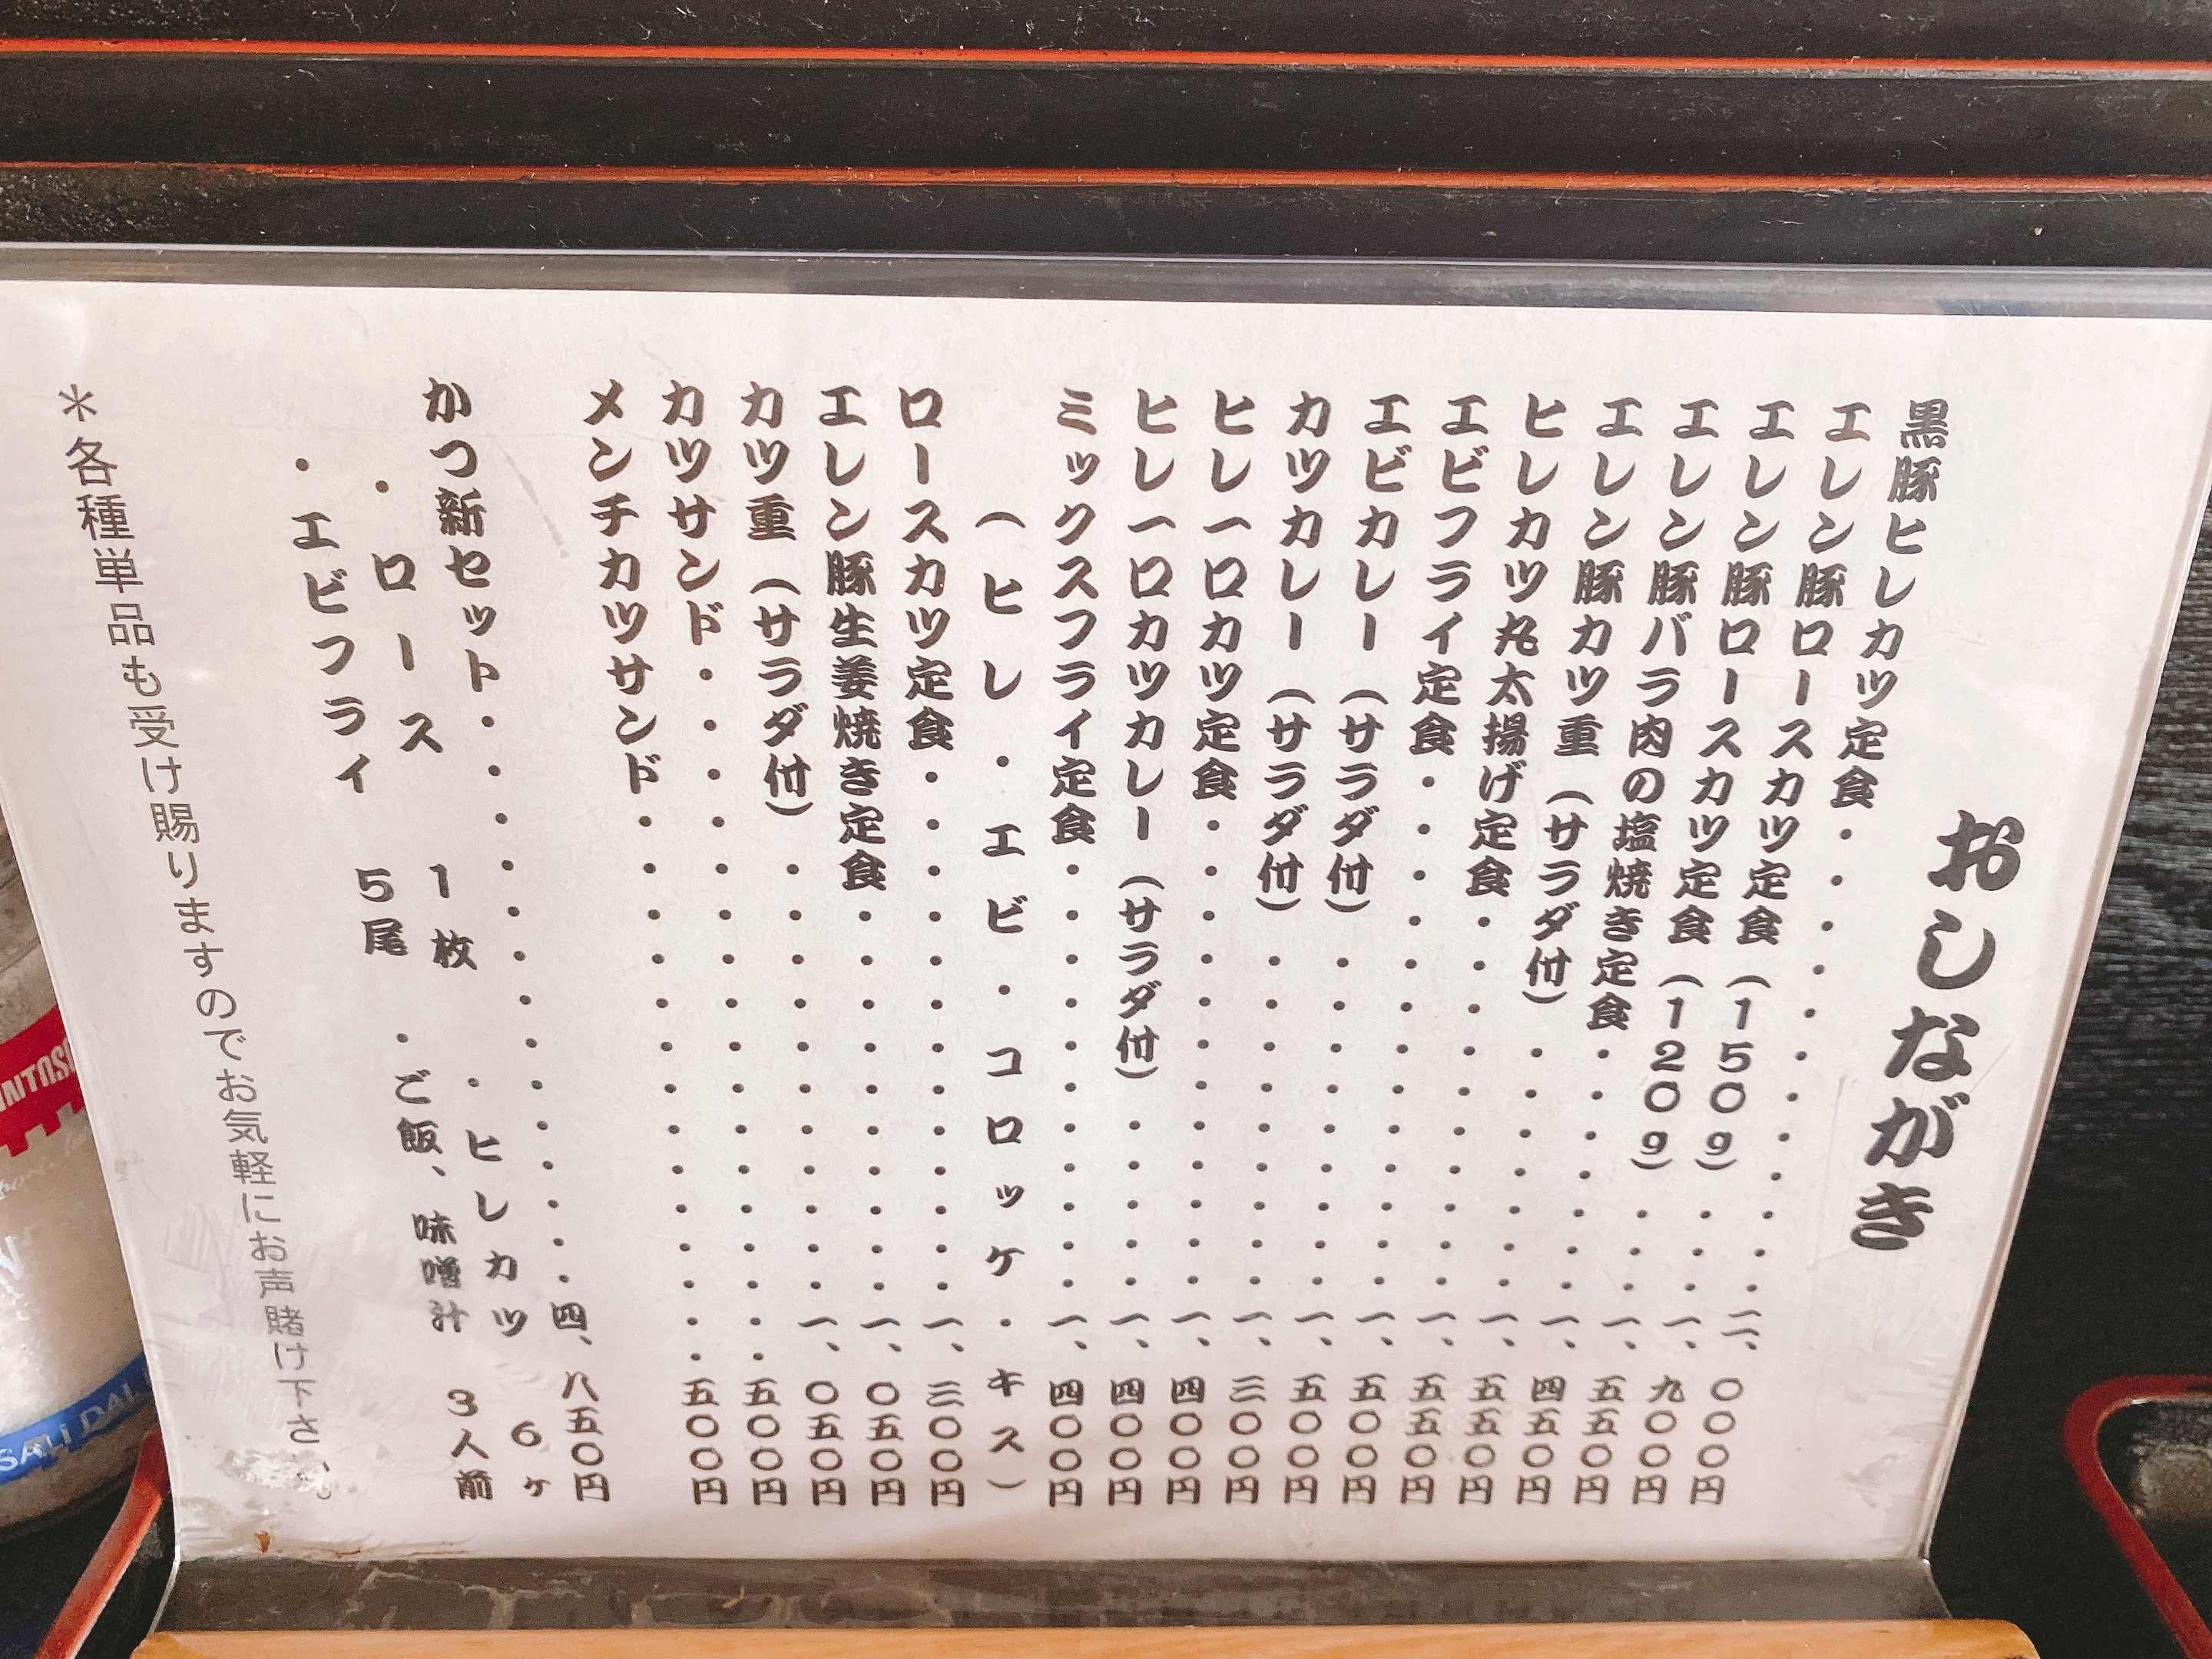 おしながき
黒豚ヒレカツ定食・・・・・・・・・・・二、〇〇〇円
エレン豚ロースカツ定食（150g）・・一、九〇〇円
エレン豚ロースカツ定食（120g）・・一、五五〇円
エレン豚バラ肉の塩焼き定食・・・・・・一、四五〇円
エレン豚カツ重（サラダ付）・・・・・・一、五五〇円
ヒレカツ丸太揚げ定食・・・・・・・・・一、五五〇円
エビフライ定食・・・・・・・・・・・・一、五〇〇円
エビカレー（サラダ付）・・・・・・・・一、五〇〇円
カツカレー（サラダ付）・・・・・・・・一、三〇〇円
ヒレ一口カツ定食・・・・・・・・・・・一、四〇〇円
ヒレ一口カツカレー（サラダ付）・・・・一、四〇〇円
ミックスフライ定食・・・・・・・・・・一、四〇〇円
（ヒレ・エビ・コロッケ・キス）
ロースカツ定食・・・・・・・・・・・・一、三〇〇円
エレン豚生姜焼き定食・・・・・・・・・一、〇五〇円
カツ重（サラダ付）・・・・・・・・・・一、〇五〇円
カツサンド・・・・・・・・・・・・・・・五〇〇円
メンチカツサンド・・・・・・・・・・・・五〇〇円
かつ新セット・・・・・・・・・・・・・四、八五〇円
・ロース 1枚 ・ヒレカツ 6ヶ
・エビフライ 5尾 ・ご飯、味噌汁 3人前
＊各種単品も受け賜りますのでお気軽にお声賭け下さい。